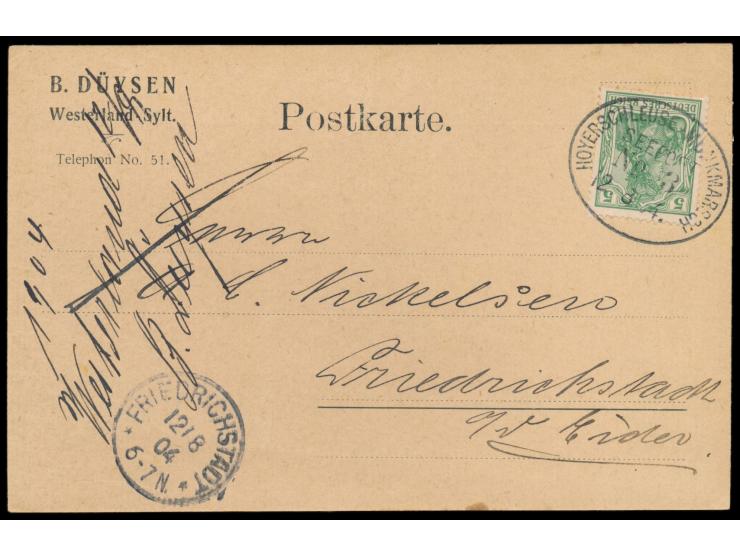 B. DÜYSEN
Westerland-Sylt.
Telephon No. 51.
Postkarte.
DEUTSCHES REICH
5 5
HOYERSCHLEUSE MUNKMARSCH
SEEPOST
No. 3
12. 8. 4.
Herrn
C. Nickelsen
Friedrichstadt
a/d Eider
Westerland 12/8
1904
* FRIEDRICHSTADT *
12/8
04
6-7N.